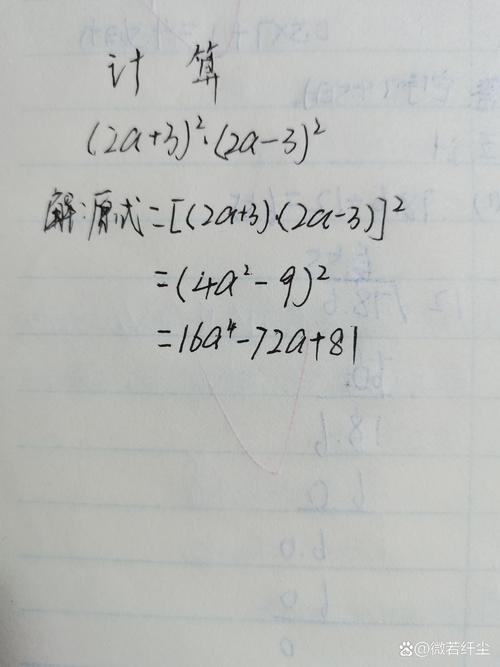 计 算
(2a+3)²·(2a-3)²
解:原式=[(2a+3)·(2a-3)]²
=(4a²-9)²
=16a⁴-72a+81
微若纤尘